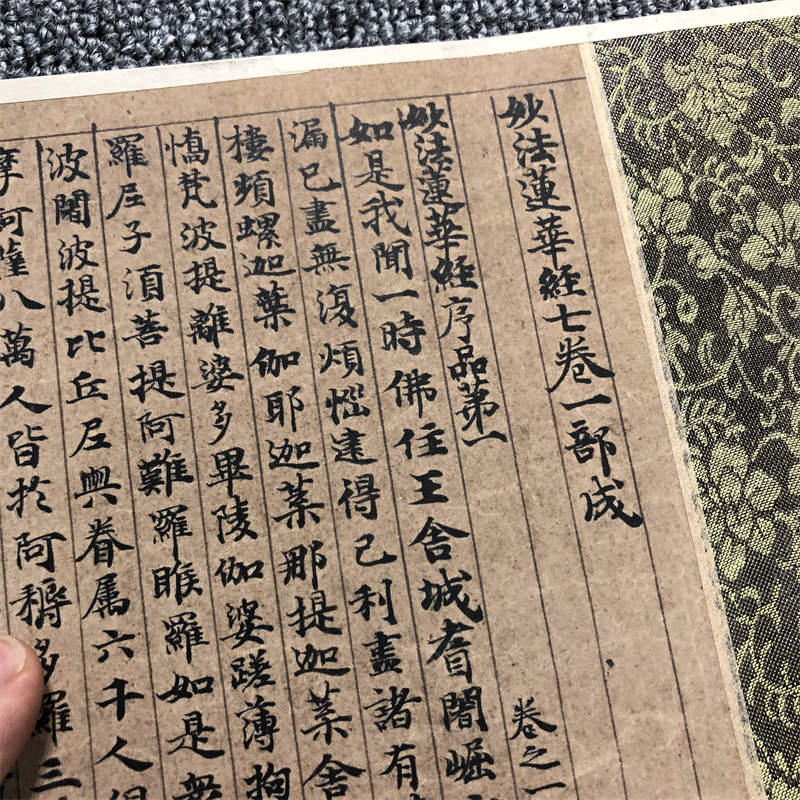 妙法蓮華経七卷一部成
妙法蓮華経序品第一 卷之一
如是我聞一時佛住王舎城耆闍崛
漏已盡無復煩惱逮得己利盡諸有
樓頻螺迦葉伽耶迦葉那提迦葉舎
憍梵波提離婆多畢陵伽婆蹉薄拘
羅尼子須菩提阿難羅睺羅如是
波闍波提比丘尼與眷属六千人俱
摩訶薩八萬人皆於阿耨多羅三